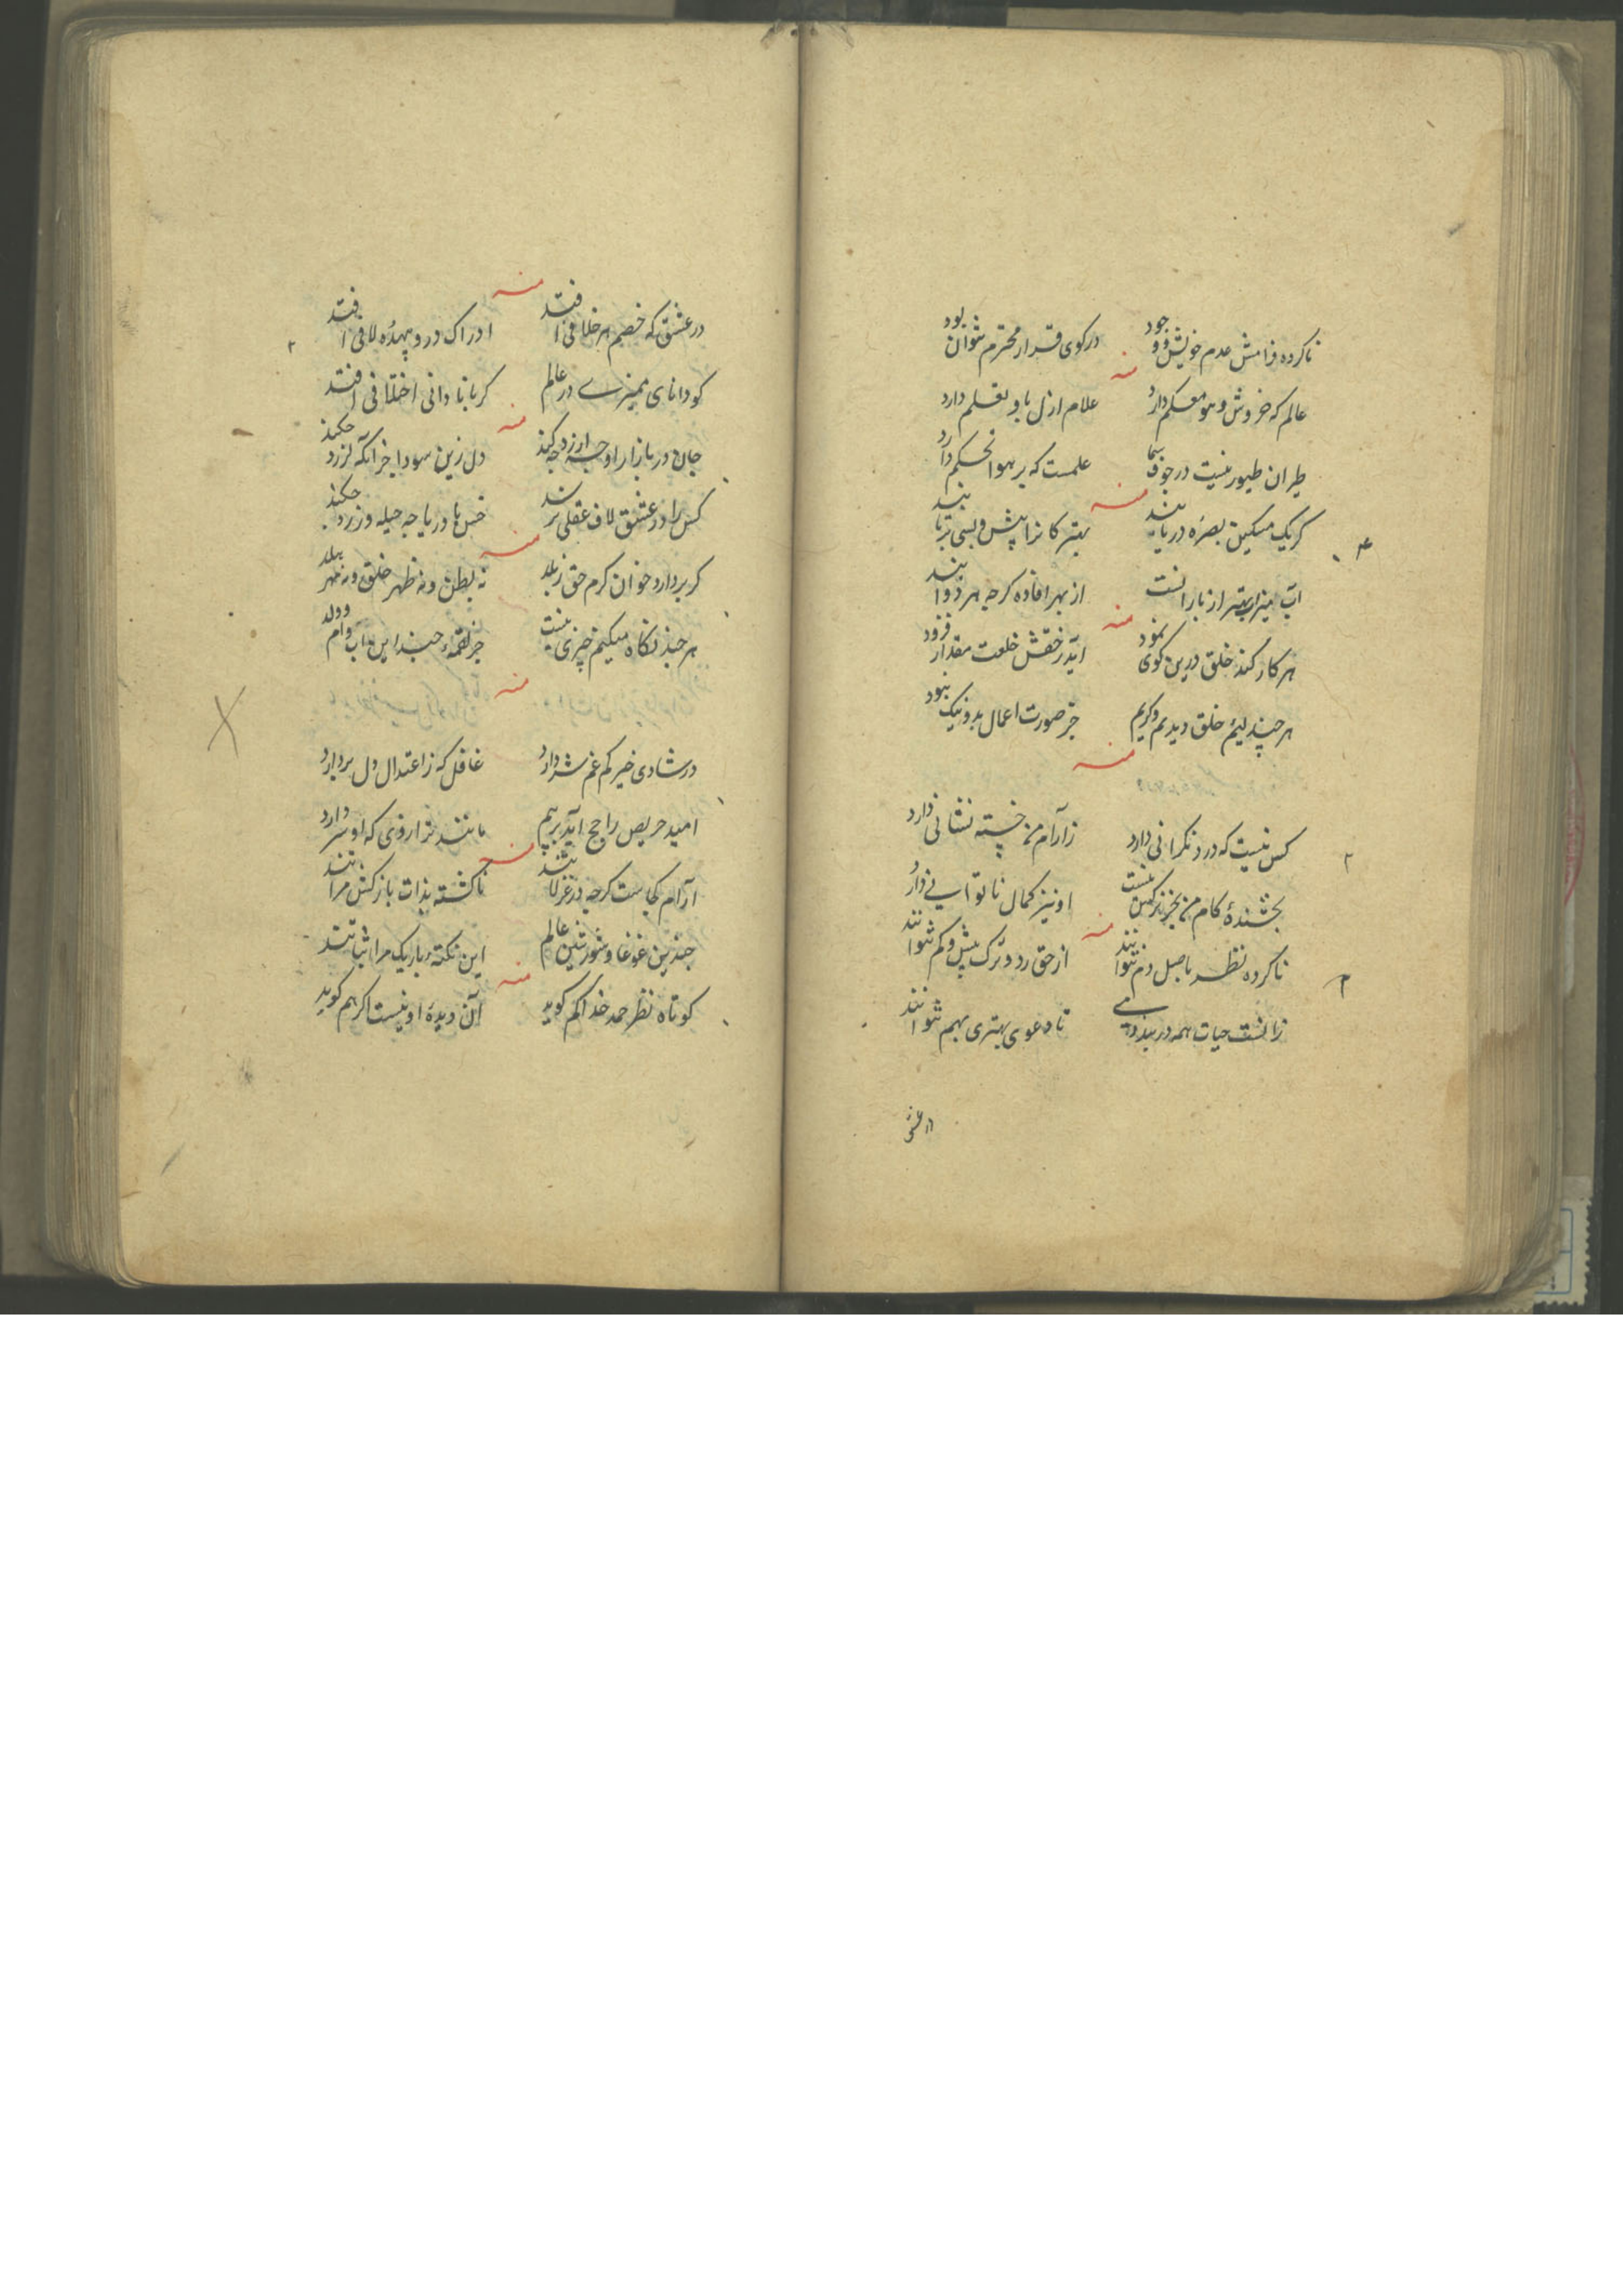 ناکرده فرامش عدم خویش و وجود
در کوی قرار محترم نتوان بود
منه
عالم که خروش و هو معسکر دارد
علام ازل با و تعلم دارد
طیران طیور نیست در جوف سما
علمست که بر هوا تحکم دارد
منه
کریک مسکین بصره دریابند
بهتر کانرا پیش و بسی برتابند
آب میزاب بهتر از بارانست
از بهر افاده کرچه هر دو آبند
منه
هر کار کند خلق درین کوی نمود
آید ز حقش خلعت مقدار فزود
هر چند لئیم خلق دیدیم و کریم
جز صورت اعمال بد و نیک نبود
منه
کس نیست که درد نکرانی دارد
زارام من خسته نشانی دارد
بخشندهٔ کام من بجز نرکس نیست
او نیز کمال ناتوانی دارد
منه
ناکرده نظر باصل دم نتوانند
از حق رد و ترک بیش و کم نتوانند
زانست حیات همه در بند دمی
تا دعوی بهتری بهم نتوانند
در عشق
منه
در عشق که خصم هر خلافی افتد
ادراک درو بیهده لافی افتد
کو دانای ممیزی در عالم
کر با نادانی اختلافی افتد
منه
جان در بازار او چه ارزد چه کند
دل زین سودا جز آنکه لرزد چکند
کس را در عشق لاف عقلی نرسد
خس با دریا چه حیله ورزد چکند
منه
کر بردارد خوان کرم حق ز بلد
نه بطن و نه ظهر خلق و نه مهر بلد
هر چند نکاه میکنم چیزی نیست
جز لقمهٔ چند این اب و ام و ولد
منه
در شادی خیر کم غم شر دارد
غافل که ز اعتدال دل بردارد
امید حریص راجح آید بر بیم
مانند ترازوی که او سر دارد
منه
آرام کجاست کرچه در غزلا تنند
ناکشته بذات باز کش مرا تنند
چندین غوغا و شورش این عالم
این نکته باریک مرا اثباتند
منه
کوتاه نظر حمد خدا کم کوید
آن دیدهٔ او نیست اکر هم کوید